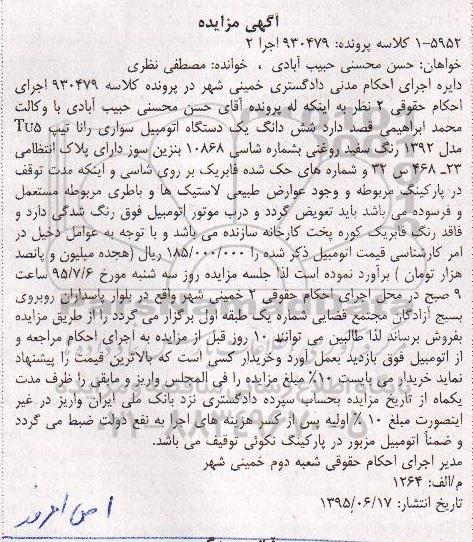 آگهی مزایده
۱-۵۹۵۲ کلاسه پرونده: ۹۳۰۴۷۹ اجرا ۲
خواهان: حسن محسنی حبیب آبادی ، خوانده: مصطفی نظری
دایره اجرای احکام مدنی دادگستری خمینی شهر در پرونده کلاسه ۹۳۰۴۷۹ اجرای
احکام حقوقی ۲ نظر به اینکه له پرونده آقای حسن محسنی حبیب آبادی با وکالت
محمد ابراهیمی قصد دارد شش دانگ یک دستگاه اتومبیل سواری رانا تیپ TU۵
مدل ۱۳۹۲ رنگ سفید روغنی بشماره شاسی ۱۰۸۶۸ بنزین سوز دارای پلاک انتظامی
۲۳ـ ۴۶۸ س ۳۲ و شماره های حک شده فابریک بر روی شاسی و اینکه مدت توقف
در پارکینگ مربوطه و وجود عوارض طبیعی لاستیک ها و باطری مربوطه مستعمل
و فرسوده می باشد باید تعویض گردد و درب موتور اتومبیل فوق رنگ شدگی دارد و
فاقد رنگ فابریک کوره پخت کارخانه سازنده می باشد و با توجه به عوامل دخیل در
امر کارشناسی قیمت اتومبیل ذکر شده را ۱۸۵/۰۰۰/۰۰۰ ریال (هجده میلیون و پانصد
هزار تومان ) برآورد نموده است لذا جلسه مزایده روز سه شنبه مورخ ۹۵/۷/۶ ساعت
۹ صبح در محل اجرای احکام حقوقی ۲ خمینی شهر واقع در بلوار پاسداران روبروی
بسیج آزادگان مجتمع قضایی شماره یک طبقه اول برگزار می گردد را از طریق مزایده
بفروش برساند لذا طالبین می توانند ۱۰ روز قبل از مزایده به اجرای احکام مراجعه و
از اتومبیل فوق بازدید بعمل آورد وخریدار کسی است که بالاترین قیمت را پیشنهاد
نماید خریدار می بایست ۱۰٪ مبلغ مزایده را فی المجلس واریز و مابقی را ظرف مدت
یکماه از تاریخ مزایده بحساب سپرده دادگستری نزد بانک ملی ایران واریز در غیر
اینصورت مبلغ ۱۰٪ اولیه پس از کسر هزینه های اجرا به نفع دولت ضبط می گردد
و ضمناً اتومبیل مزبور در پارکینگ نکوئی توقیف می باشد.
مدیر اجرای احکام حقوقی شعبه دوم خمینی شهر
م/الف: ۱۲۶۴
تاریخ انتشار: ۱۳۹۵/۰۶/۱۷